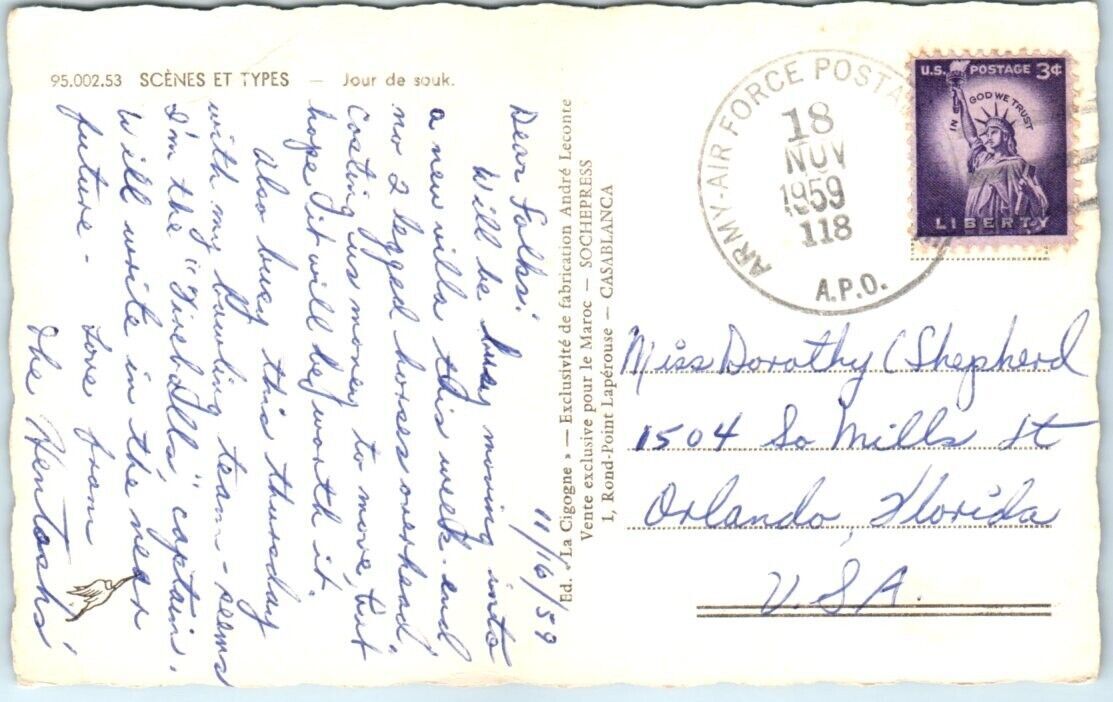 95.002.53 SCÈNES ET TYPES — Jour de souk.
11/16/59
Dear Folks:
Will be busy moving into
a new villa this week-end
no 2 legged horses overhead.
Costing us money to move, but
hope it will be worth it.
Also busy this thursday
with my bowling team - seems
I'm the "Dish Alls" captain.
Will write in the near
future - Love from
The Hentosh's
Ed. « La Cigogne » — Exclusivité de fabrication André Leconte
Vente exclusive pour le Maroc — SOCHEPRESS
1, Rond-Point Lapérouse — CASABLANCA
ARMY-AIR FORCE POSTA
18
NOV
1959
118
A.P.O.
U.S. POSTAGE 3¢
IN GOD WE TRUST
LIBERTY
Miss Dorothy C Shepherd
1504 So Mills St
Orlando, Florida
U.S.A.